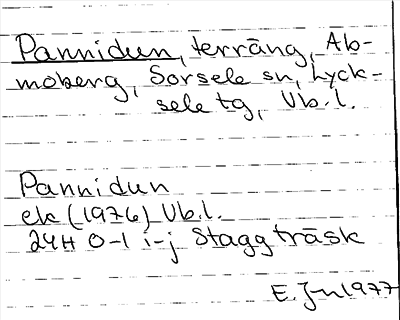 Pannidun, terräng, Ab-
moberg, Sorsele sn, Lyck-
sele tg, Vb.l.
Pannidun
ek (1976) Vb.l.
24H 0-1 i-j Staggträsk
E. Jn 1977